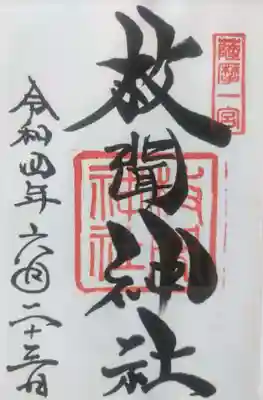 薩摩一宮
枚聞神社
枚聞
神社
令和四年六月二十三日